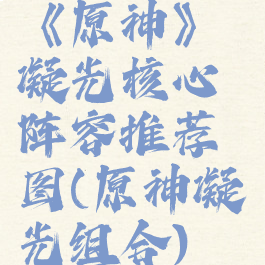 《原神》
凝光核心
阵容推荐
图(原神凝
光组合)